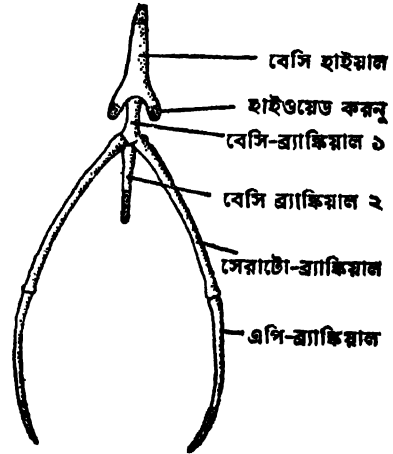 বেসি হাইয়াল
হাইওয়েড করনু
বেসি-ব্র্যাঙ্কিয়াল ১
বেসি ব্র্যাঙ্কিয়াল ২
সেরাটো-ব্র্যাঙ্কিয়াল
এপি-ব্র্যাঙ্কিয়াল